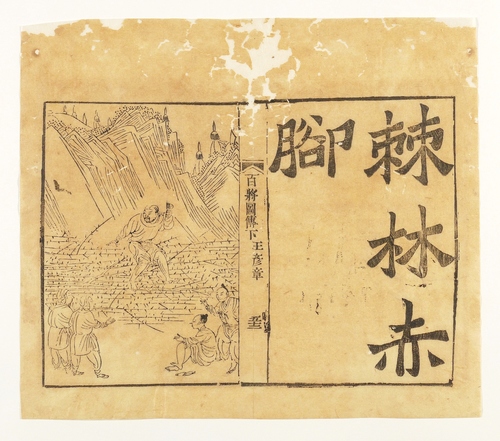 棘林赤
腳
百將圖傳下王彥章